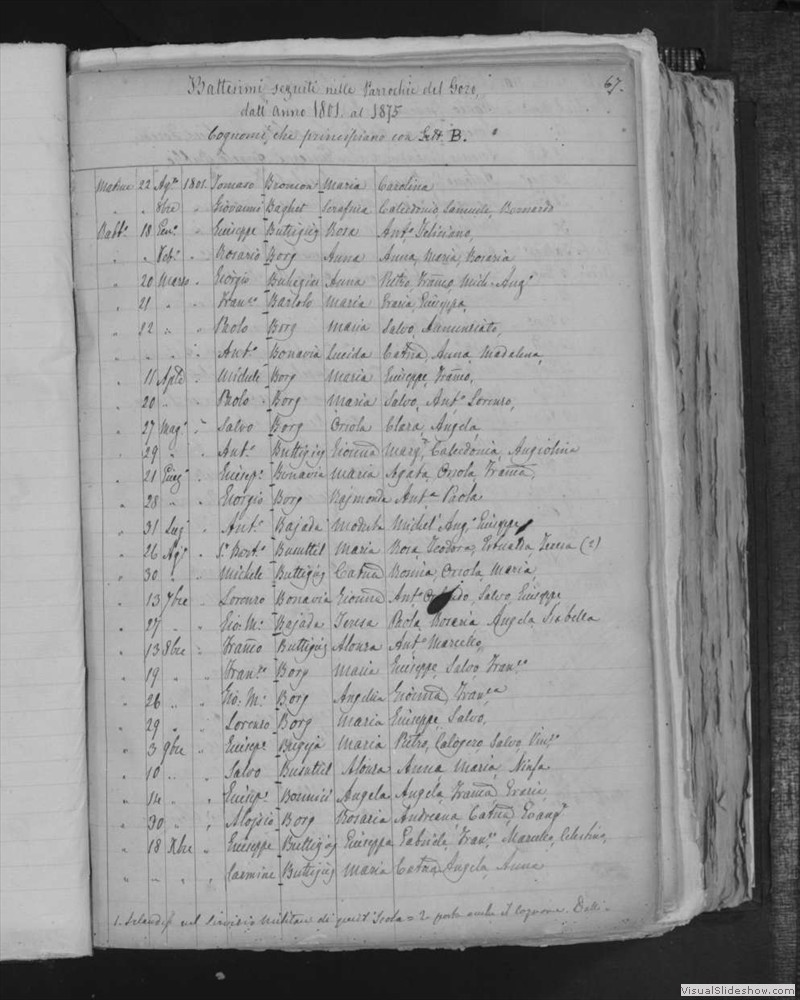 67.
Battesimi seguiti nelle Parrochie del Gozo,
dall'anno 1801. al 1875
Cognomi che principiano con Lett. B.
Matrice 22 Ag.to 1801. Tomaso Maria Carolina
" " 8bre " Giovanni Baghet Serafina Caledonio Samuele, Bernardo
Rabb.o 18 Gen.o " Giuseppe Buttigieg Rosa Ant.o Feliciano,
" " Feb.o " Rosario Borg Anna Anna, Maria, Rosaria
" 20 Marzo " Giorgio Anna Pietro, Franco, Mich. Ang.o
" 21 " " Fran.co Bartolo Maria Grazia, Giuseppa,
" 12 " " Paolo Borg Maria Salvo, Annunziato,
" " " " Ant.o Bonavia Lucida Catna, Anna, Madalena,
" 11 Aple " Michele Borg Maria Giuseppe, Franco,
" 20 " " Paolo Borg Maria Salvo, Ant.o Lorenzo,
" 27 Mag.o " Salvo Borg Orsola Clara, Angela,
" 29 " " Ant.o Buttigieg Gioanna Marg.a Caledonia, Angiolina
" 21 Giug.o " Giusep.e Bonavia Maria Agata, Orsola, Franca,
" 28 " " Giorgio Borg Rajmonda Ant.a Paola
" 31 Lug.o " Ant.o Bajada Modesta Michel' Ang.o Giuseppe
" 26 Ag.o " S.r Bart.o Busuttil Maria Rosa, Teodora, Teresa (2)
" 30 " " Michele Buttigieg Catna Rosina, Orsola, Maria,
" 13 7bre " Lorenzo Bonavia Gioanna Ant.o Salvo, Giuseppe
" 27 " " Gio: M.a Bajada Teresa Paola, Rosaria, Angela, Isabella
" 13 8bre " Franco Buttigieg Alonza Ant.o Marcello,
" 19 " " Fran.co Borg Maria Giuseppe, Salvo, Fran.co
" 26 " " Gio: M.a Borg Angelica Gioanna, Fran.ca
" 29 " " Lorenzo Borg Maria Giuseppe, Salvo,
" 3 9bre " Giusep.e Bugeja Maria Pietro, Calogero, Salvo, Vin.o
" 10 " " Salvo Busuttil Alonza Anna, Maria, Ninfa
" 14 " " Giusep.e Angela Angela, Franca, Grazia
" 30 " " Alojsio Borg Rosaria Andreana, Catna, Evang.a
" 18 Xbre " Giuseppe Buttigieg Giuseppa Gabriele, Fran.co Marcello, Celestino,
" " " " Carmine Buttigieg Maria Catna, Angela, Anna
1. nel Servizio Militare di quest' Isola = 2 porta anche il cognome
VisualSlideshow.com